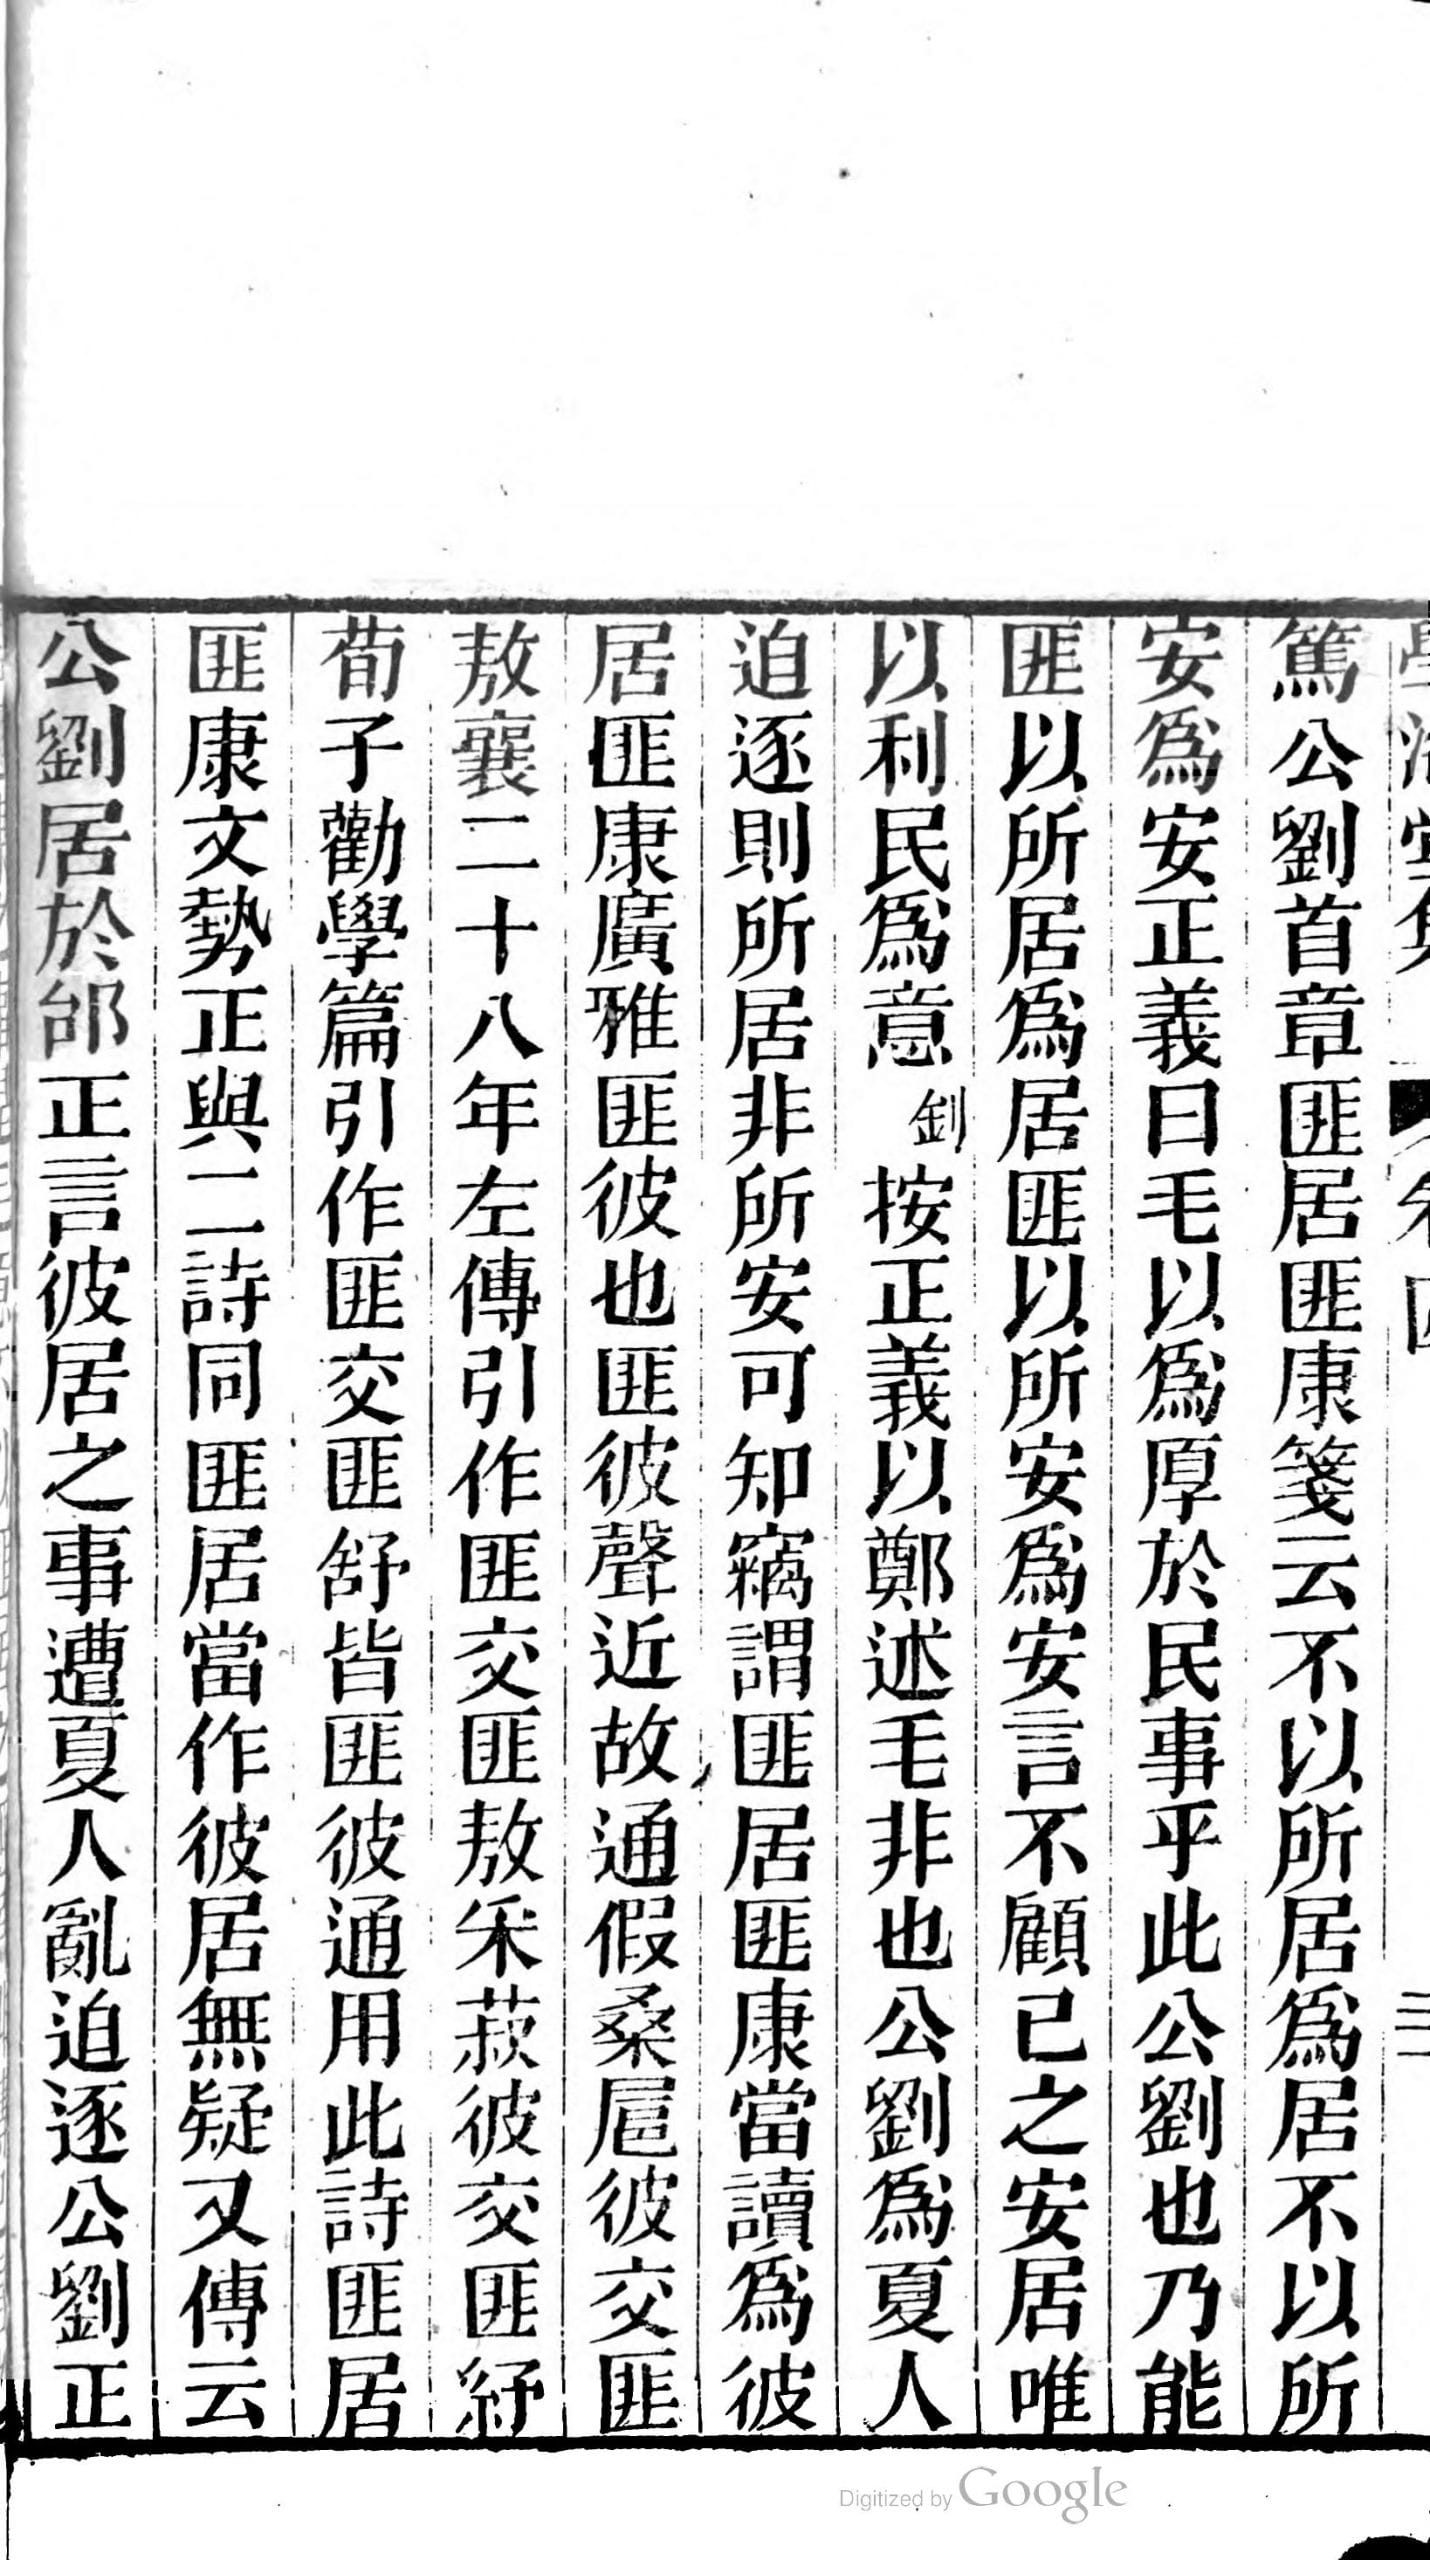 篤公劉首章匪居匪康箋云不以所居爲居不以所
安爲安正義曰毛以爲厚於民事乎此公劉也乃能
匪以所居爲居匪以所安爲安言不顧已之安居唯
以利民爲意釗按正義以鄭述毛非也公劉爲夏人
迫逐則所居非所安可知竊謂匪居匪康當讀爲彼
居匪康廣雅匪彼也匪彼聲近故通假桑扈彼交匪
敖襄二十八年左傳引作匪交匪敖采菽彼交匪紓
荀子勸學篇引作匪交匪舒皆匪彼通用此詩匪居
匪康文勢正與二詩同匪居當作彼居無疑又傳云
公劉居於邰正言彼居之事遭夏人亂迫逐公劉正
Digitized by Google